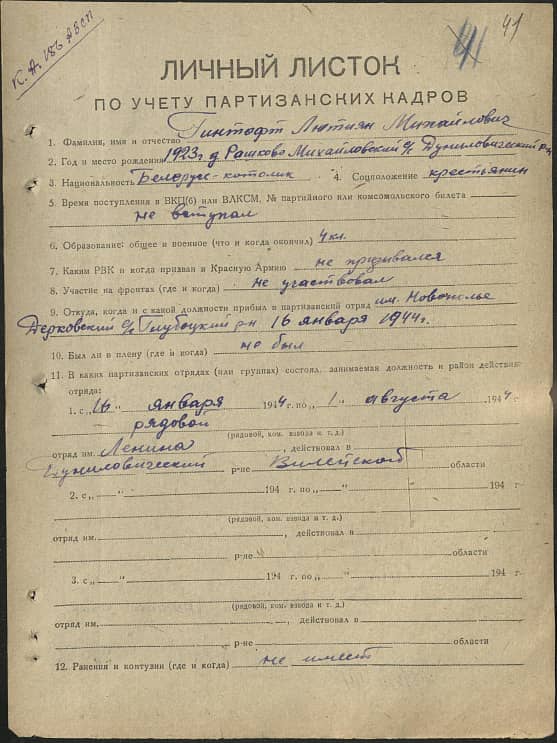 41
ЛИЧНЫЙ ЛИСТОК
ПО УЧЕТУ ПАРТИЗАНСКИХ КАДРОВ
1. Фамилия, имя и отчество Гинтофт Люциян Михайлович
2. Год и место рождения 1923г д. Рашково Михайловский с/с Дуниловичский р-н
3. Национальность Белорус-католик 4. Соцположение крестьянин
5. Время поступления в ВКП(б) или ВЛКСМ, № партийного или комсомольского билета
не вступал
6. Образование: общее и военное (что и когда окончил) 4 кл.
7. Каким РВК и когда призван в Красную Армию не призывался
8. Участие на фронтах (где и когда) не участвовал
9. Откуда, когда и с какой должности прибыл в партизанский отряд им. Новополье
Дерковский с/с Глубоцкий р-н 16 января 1944г.
10. Был ли в плену (где и когда) не был
11. В каких партизанских отрядах (или группах) состоял, занимаемая должность и район действия
отряда:
1. с „16“ января 1944 г. по „1“ августа 1944 г.
рядовой
(рядовой, ком. взвода и т. д.)
отряд им. Ленина, действовал в
Дуниловичский р-не Вилейской области
2. с „ “ 194 г. по „ “ 194 г.
(рядовой, ком. взвода и т. д.)
отряд им. , действовал в
р-не области
3. с „ “ 194 г. по „ “ 194 г.
(рядовой, ком. взвода и т. д.)
отряд им. , действовал в
р-не области
12. Ранения и контузии (где и когда) не имеет